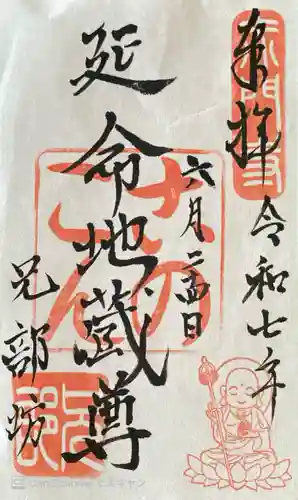 奉拝
令和七年
六月二十四日
延命地蔵尊
兄部坊
CamScanner でスキャン